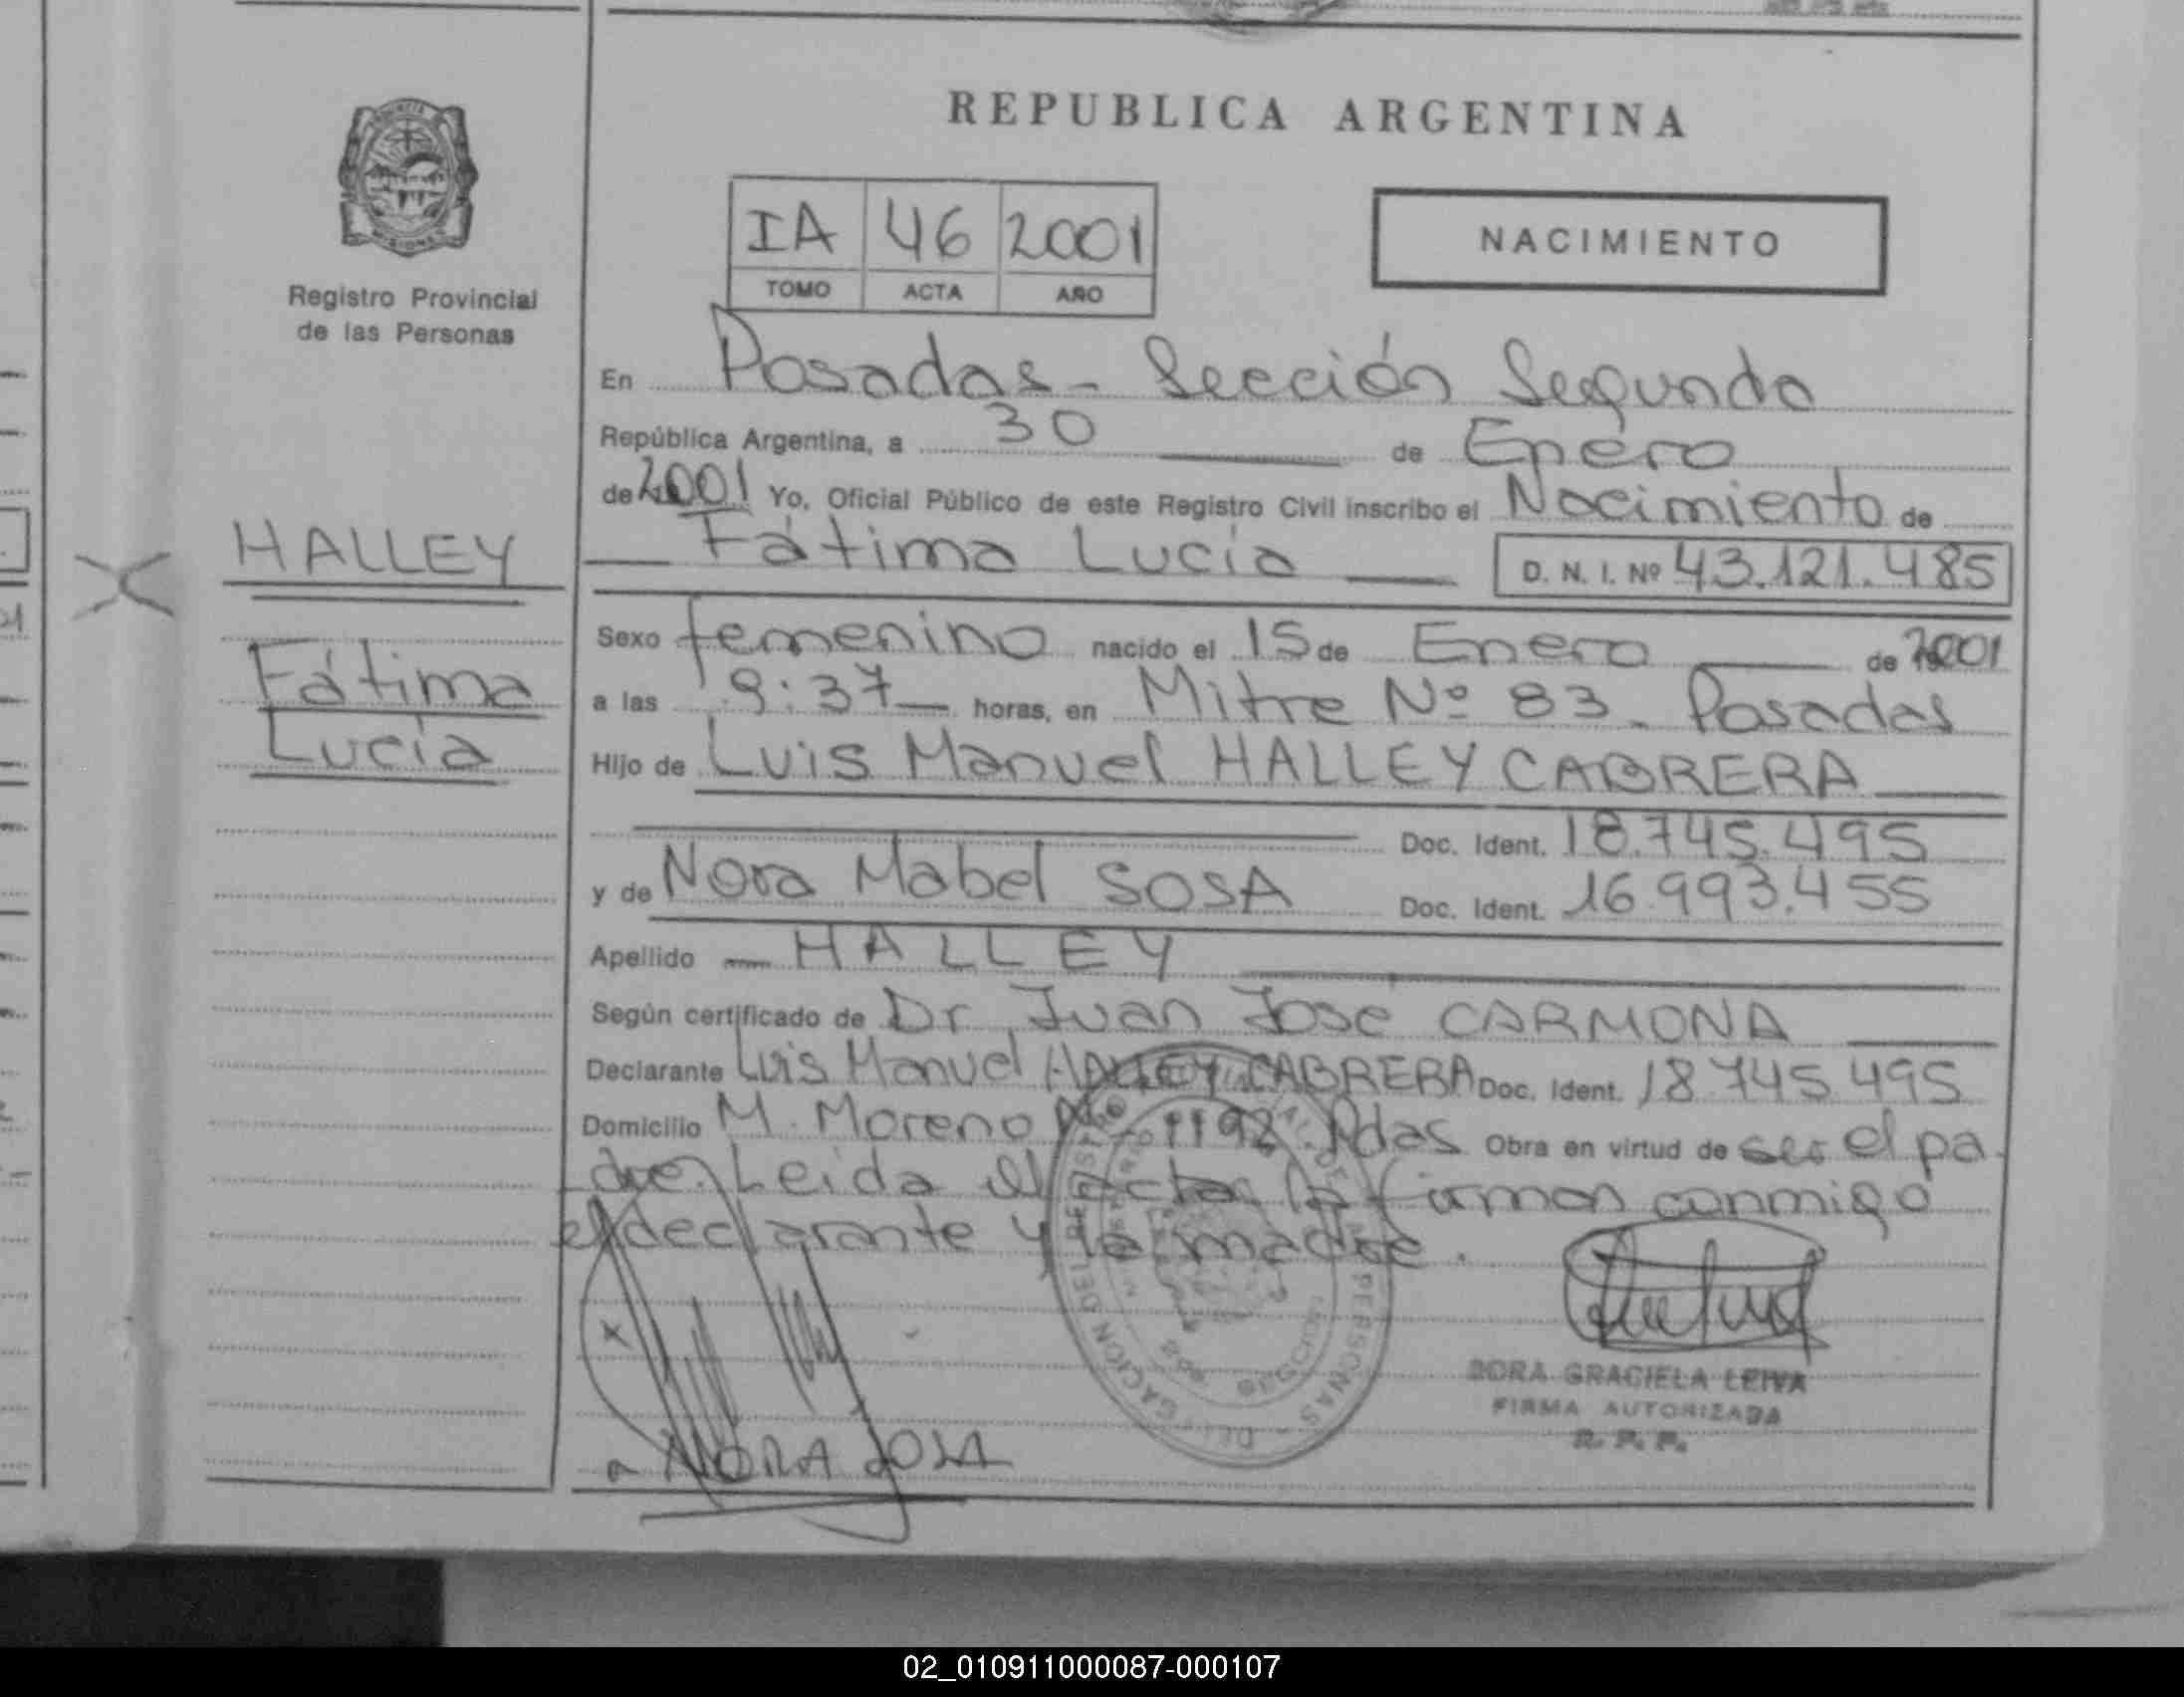 REPUBLICA ARGENTINA
IA 46 2001
TOMO ACTA AÑO
NACIMIENTO
Registro Provincial
de las Personas
HALLEY
Fátima
Lucía
En Posadas - Sección Segunda
República Argentina, a 30 de Enero
de 2001 Yo, Oficial Público de este Registro Civil inscribo el Nacimiento de
Fátima Lucía D. N. I. Nº 43.121.485
Sexo femenino nacido el 15 de Enero de 2001
a las 9:37 horas, en Mitre Nº 83. Posadas
Hijo de Luis Manuel HALLEY CABRERA
Doc. Ident. 18.745.495
y de Nora Mabel SOSA Doc. Ident. 16.993.455
Apellido HALLEY
Según certificado de Dr. Juan José CARMONA
Declarante Luis Manuel HALLEY CABRERA Doc. Ident. 18.745.495
Domicilio M. Moreno Nº 1192. Pdas Obra en virtud de ser el pa
dre. Leida el acta, la firman conmigo
el declarante y la madre.
DELEGACION DEL REGISTRO PERSONAS
NORA SOSA
GRACIELA LEIVA
FIRMA AUTORIZADA
R. P. P.
02_010911000087-000107